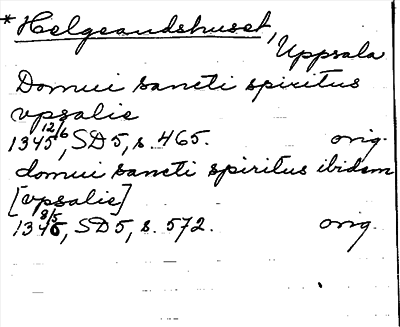 *Helgeandshuset,
Uppsala
Domui sancti spiritus
vpsalie
1345 12/6, SD 5, s. 465. orig.
domui sancti spiritus ibidem
[vpsalie]
1346 8/5, SD 5, s. 572. orig.